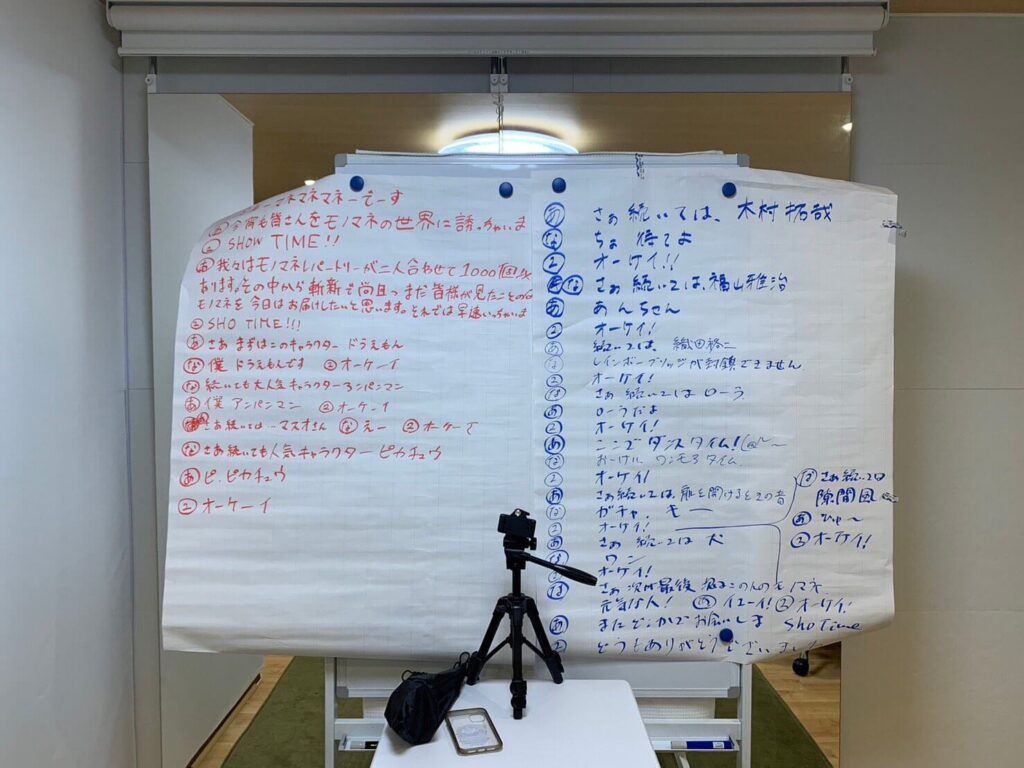 マネマネマネーでーす
あ 今宵も皆さんをモノマネの世界に誘っちゃいま
② SHOW TIME!!
あ 我々はモノマネレパートリーが二人合わせて1000個以
あります。その中から斬新で尚且つまだ皆様が見たことの
モノマネを今日はお届けしたいと思います。それでは早速いっちゃいま
② SHO TIME!!!
あ さあ まずはこのキャラクター ドラえもん
な 僕 ドラえもんです ② オーケーイ
な 続いても大人気キャラクター アンパンマン
あ 僕 アンパンマン ② オーケーイ
さあ続いては マスオさん な えー ② オーケーイ
な さあ続いても人気キャラクター ピカチュウ
あ ピ、ピカチュウ
② オーケーイ
あ さぁ 続いては、木村拓哉
な ちょ 待てよ
② オーケイ!!
な さぁ 続いては、福山雅治
あ あんちゃん
② オーケイ!
あ 続いては、織田裕二
な レインボーブリッジが封鎖できません
② オーケイ!
な さぁ 続いては ローラ
あ ローラだよ
② オーケイ!
あ ここで ダンスタイム!
な おーけい ワンモアタイム
② オーケイ!
あ さぁ続いては、扉を開けるときの音
な ガチャ、キー
② オーケイ!
あ さぁ 続いては 犬
な ワン
② オーケイ!
な さぁ 次が最後 このモノマネ
元気な人! あ イエーイ! ② オーケイ!
あ またどこかでお会いしま Sho time
② どうもありがとうございました
な さぁ続いては
隙間風
あ ひゅ〜
② オーケイ!